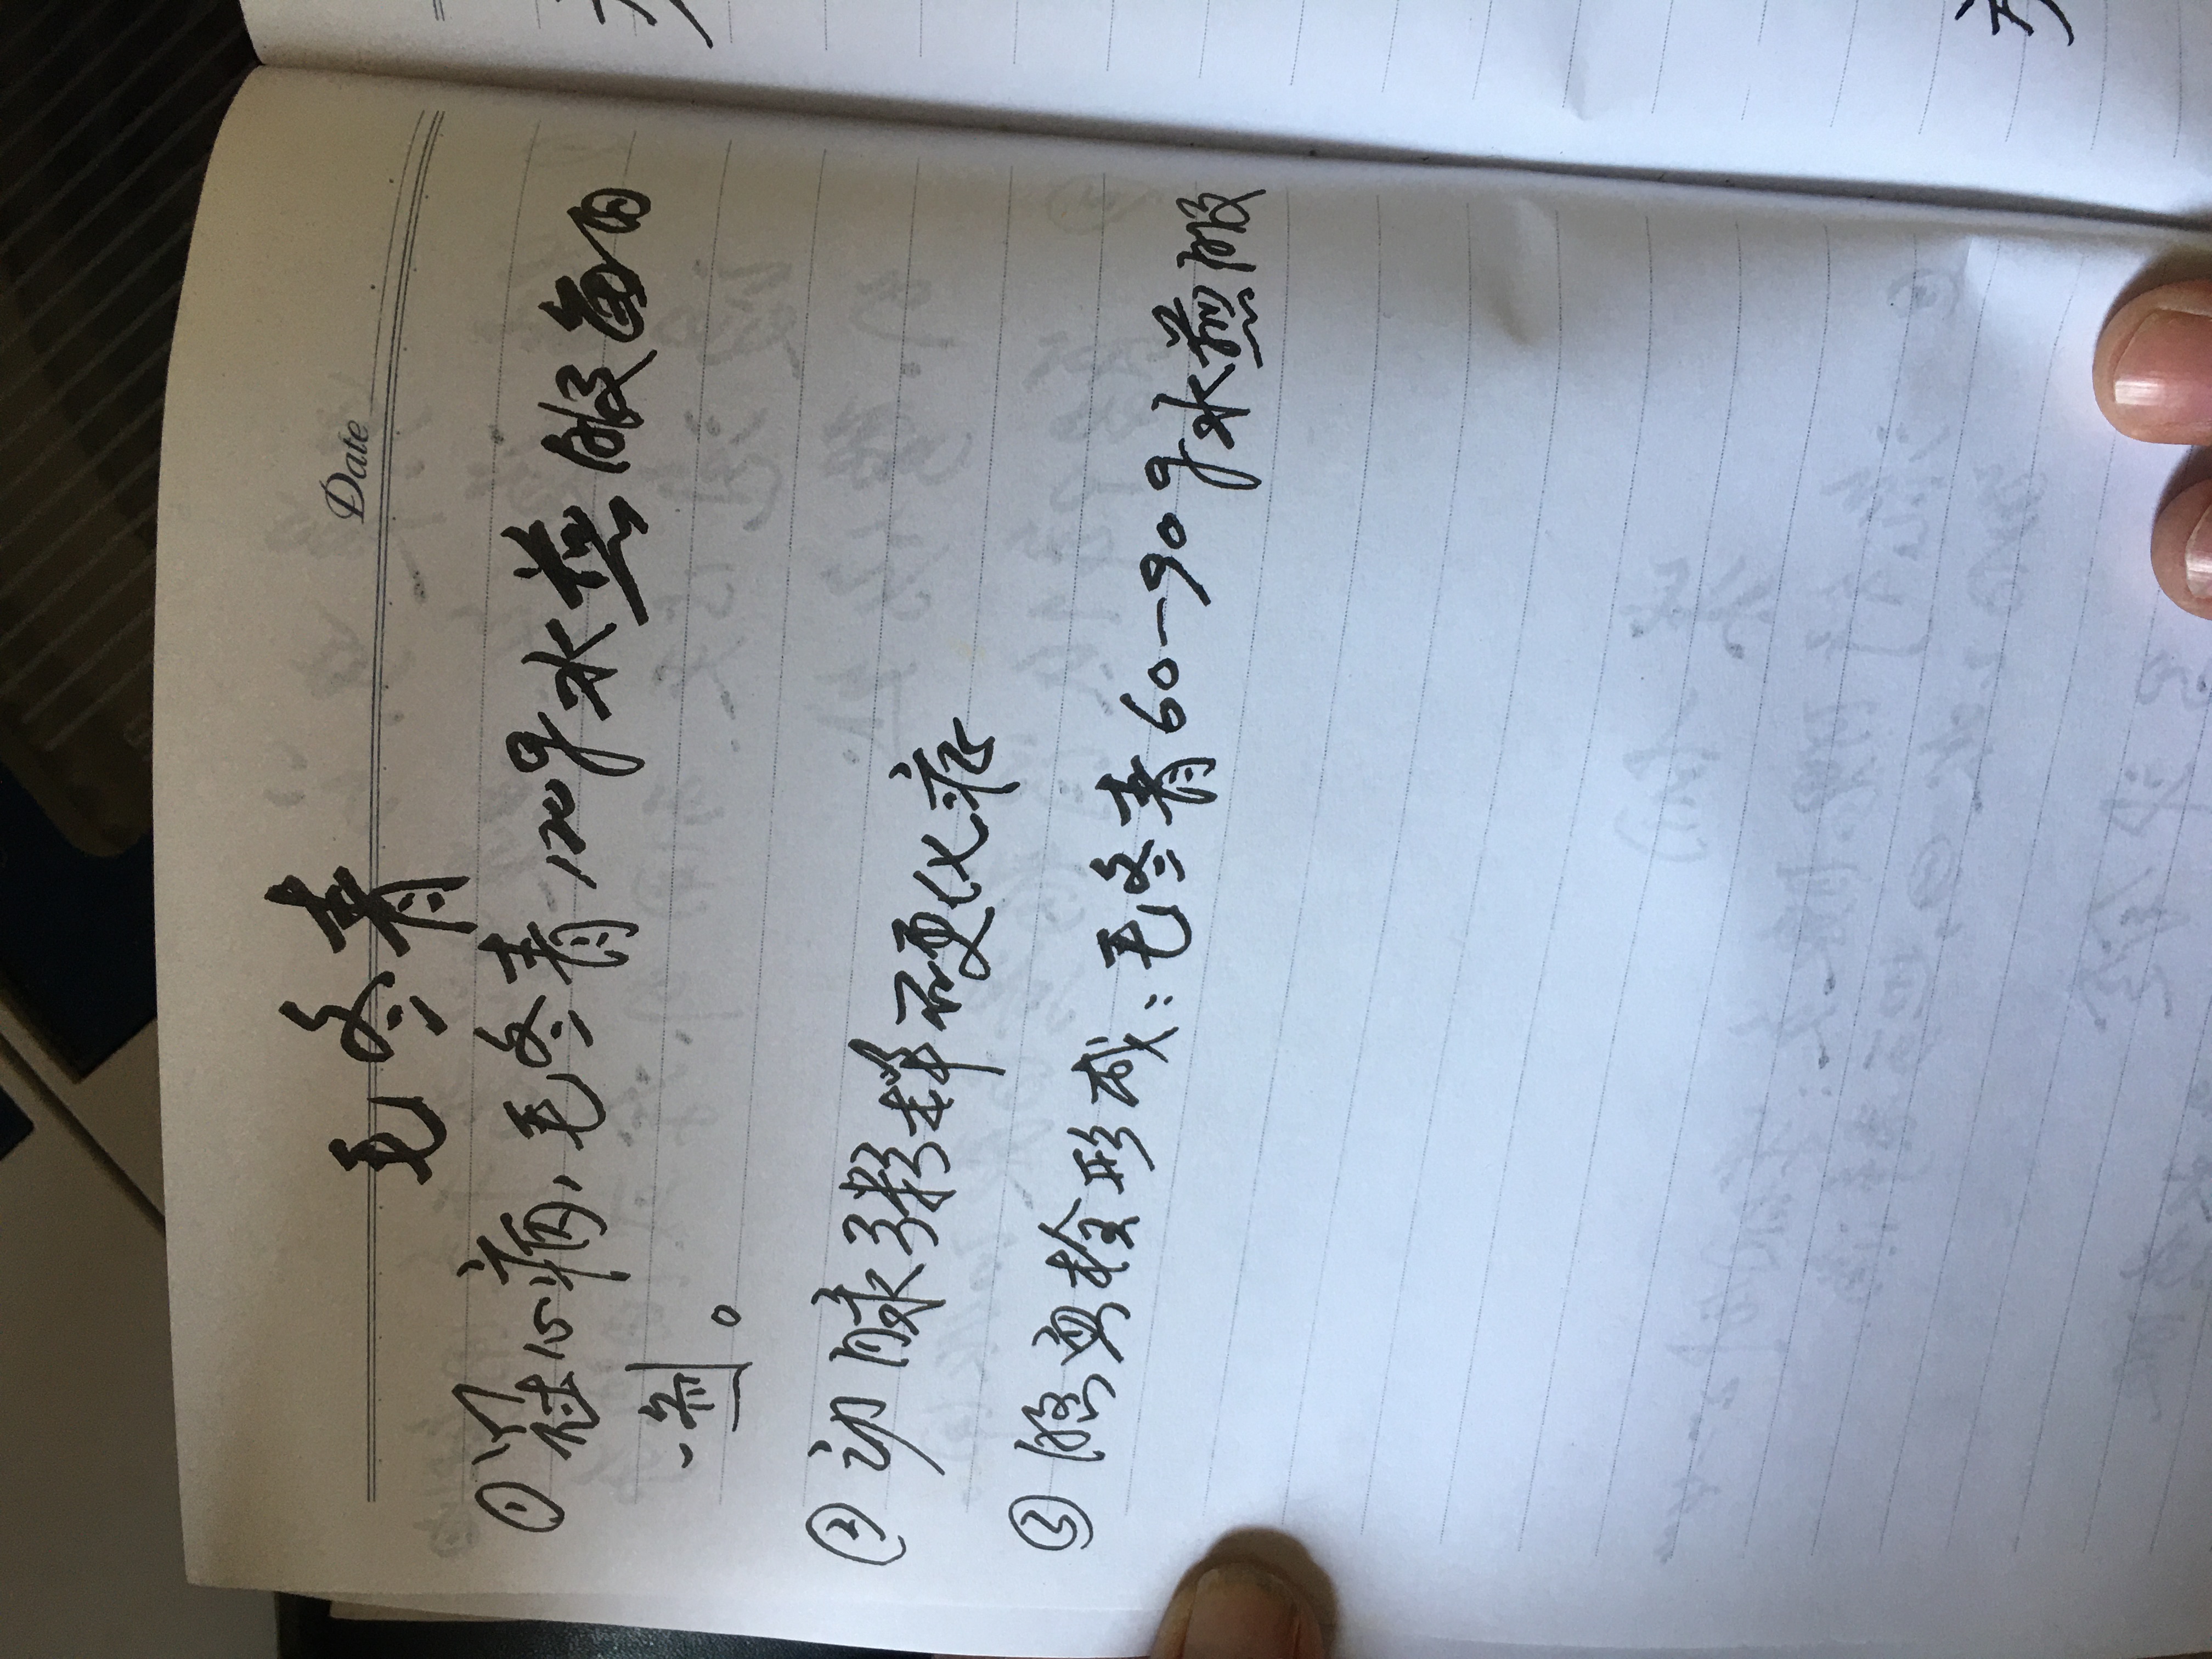 Date
毛冬青
①冠心病,毛冬青120g水煎服每日
一剂。
②动脉粥样硬化症
③脑血栓形成:毛冬青60-90g水煎服